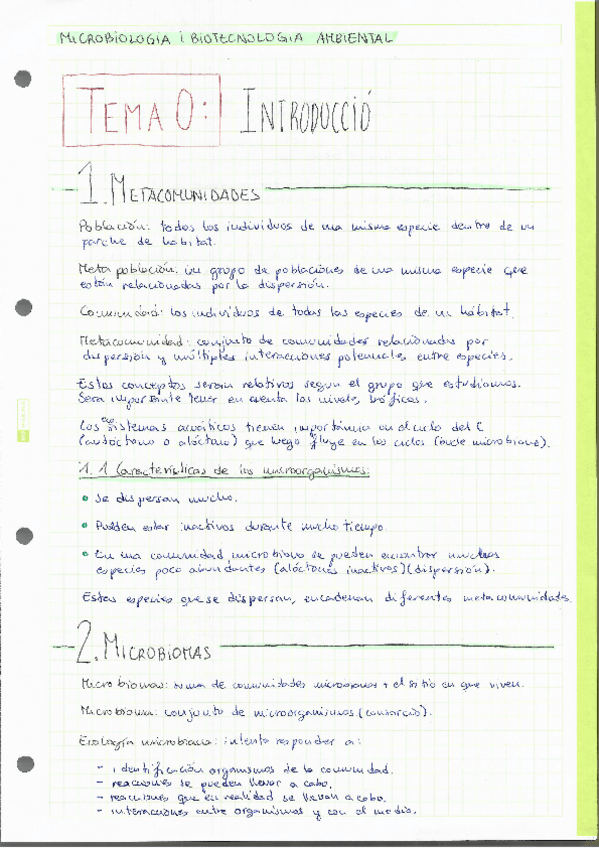 MICROBIOLOGIA i BIOTECNOLOGIA AMBIENTAL
TEMA 0: INTRODUCCIÓ
1. METACOMUNIDADES
Población: todos los individuos de una misma especie dentro de un
parche de habitat.
Meta población: un grupo de poblaciones de una misma especie que
están relacionadas por la dispersión.
Comunidad: los individuos de todas las especies de un hábitat.
Metacomunidad: conjunto de comunidades relacionadas por
dispersión y múltiples interacciones potenciales entre especies.
Estos conceptos seran relativos segun el grupo que estudiamos.
Sera importante tener en cuenta los niveles tróficos.
Los ecosistemas acuáticos tienen importáncia en el ciclo del C
(autóctono o alóctono) que luego fluye en los ciclos (bucle microbiano).
1.1 Características de los microorganismos:
• Se dispersan mucho.
• Pueden estar inactivos durante mucho tiempo.
• En una comunidad microbiana se pueden encontrar muchas
especies poco abundantes (alóctonas inactivas) (dispersión).
Estas especies que se dispersan, encadenan diferentes metacomunidades.
2. MICROBIOMAS
Microbiomas: suma de comunidades microbianas + el sitio en que viven.
Microbioma: conjunto de microorganismos (consorcio).
Ecología microbiana: intenta responder a:
- identificación organismos de la comunidad.
- reacciones se pueden llevar a cabo.
- reacciones que en realidad se llevan a cabo.
- interacciones entre organismos y con el medio.